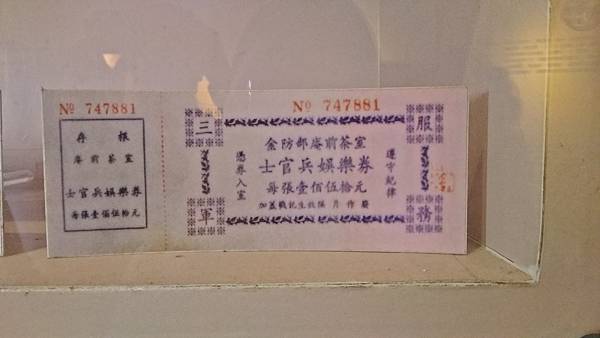 № 747881
存根
庵前茶室
士官兵娛樂券
每張壹佰伍拾元
№ 747881
三軍服務
金防部庵前茶室
士官兵娛樂券
每張壹佰伍拾元
加蓋戳記生效隔月作廢
憑券入室
遵守紀律